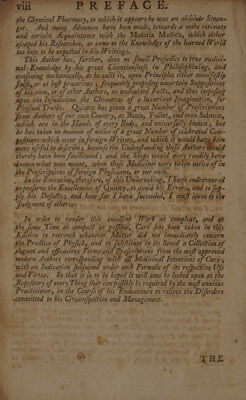 viii PREFACE.
the Chymical Pharmacy, to which it appears he was an absolute Stranger.
And many Advances have been made, towards a more intimate
and certain Acquaintance with the Materia Medica, which either
escaped his Researches, or came to the Knowledge of the learned World
too late to be expected in his Writings.
This Author has, farther, done no small Prejudice to true medicinal
Knowledge by his great Licentiousness in Philosophizing, and
confining mechanically, as he calls it, upon Principles either manifestly
false, or at best precarious; frequently proposing uncertain Suppositions
of his own, or of other Authors, as undoubted Facts, and thus imposing
upon the Injudicious the Chimeras of a luxuriant Imagination, for
Physical Truths. Quincy has given a great Number of Prescriptions
from Authors of our own Country, as Bates, Fuller, and even Salmon,
which are in the Hands of every Body, and universally known; but
he has taken in manner of notice of a great Number of celebrated Compositions
which occur in foreign Writers, and which it would have been
more useful to describe; because the Understanding these Authors would
thereby have been facilitated; and the Shops would more readily have
known what was meant, when these Medicines were taken notice of in
the Prescriptions of foreign Physicians, or our own.
In the Execution, therefore, of this Undertaking, I have endeavoured
to preserve the Excellencies of Quincy, to avoid his Errors, and to supply
his Defects; and how far I have succeeded, I must leave to the
Judgment of others.
In order to render this excellent Work as compleat, and at
the same Time as compact as possible, Care has been taken in this
Edition to retrench whatever Matter did not immediately concern
the Practice of Physick, and to substitute in its Stead a Collection of
elegant and efficacious Forms and Prescriptions from the most approved
modern Authors corresponding with all Medicinal Intentions of Cure;
with an Indication subjoined under each Formula of its respective Use
and Virtue. So that it is to be hoped It will now be looked upon as the
Repository of every Thing that can possibly be required by the most anxious
Practitioner, in the Course of his Endeavours to relieve the Disorders
committed to his Circumspection and Management.
THE